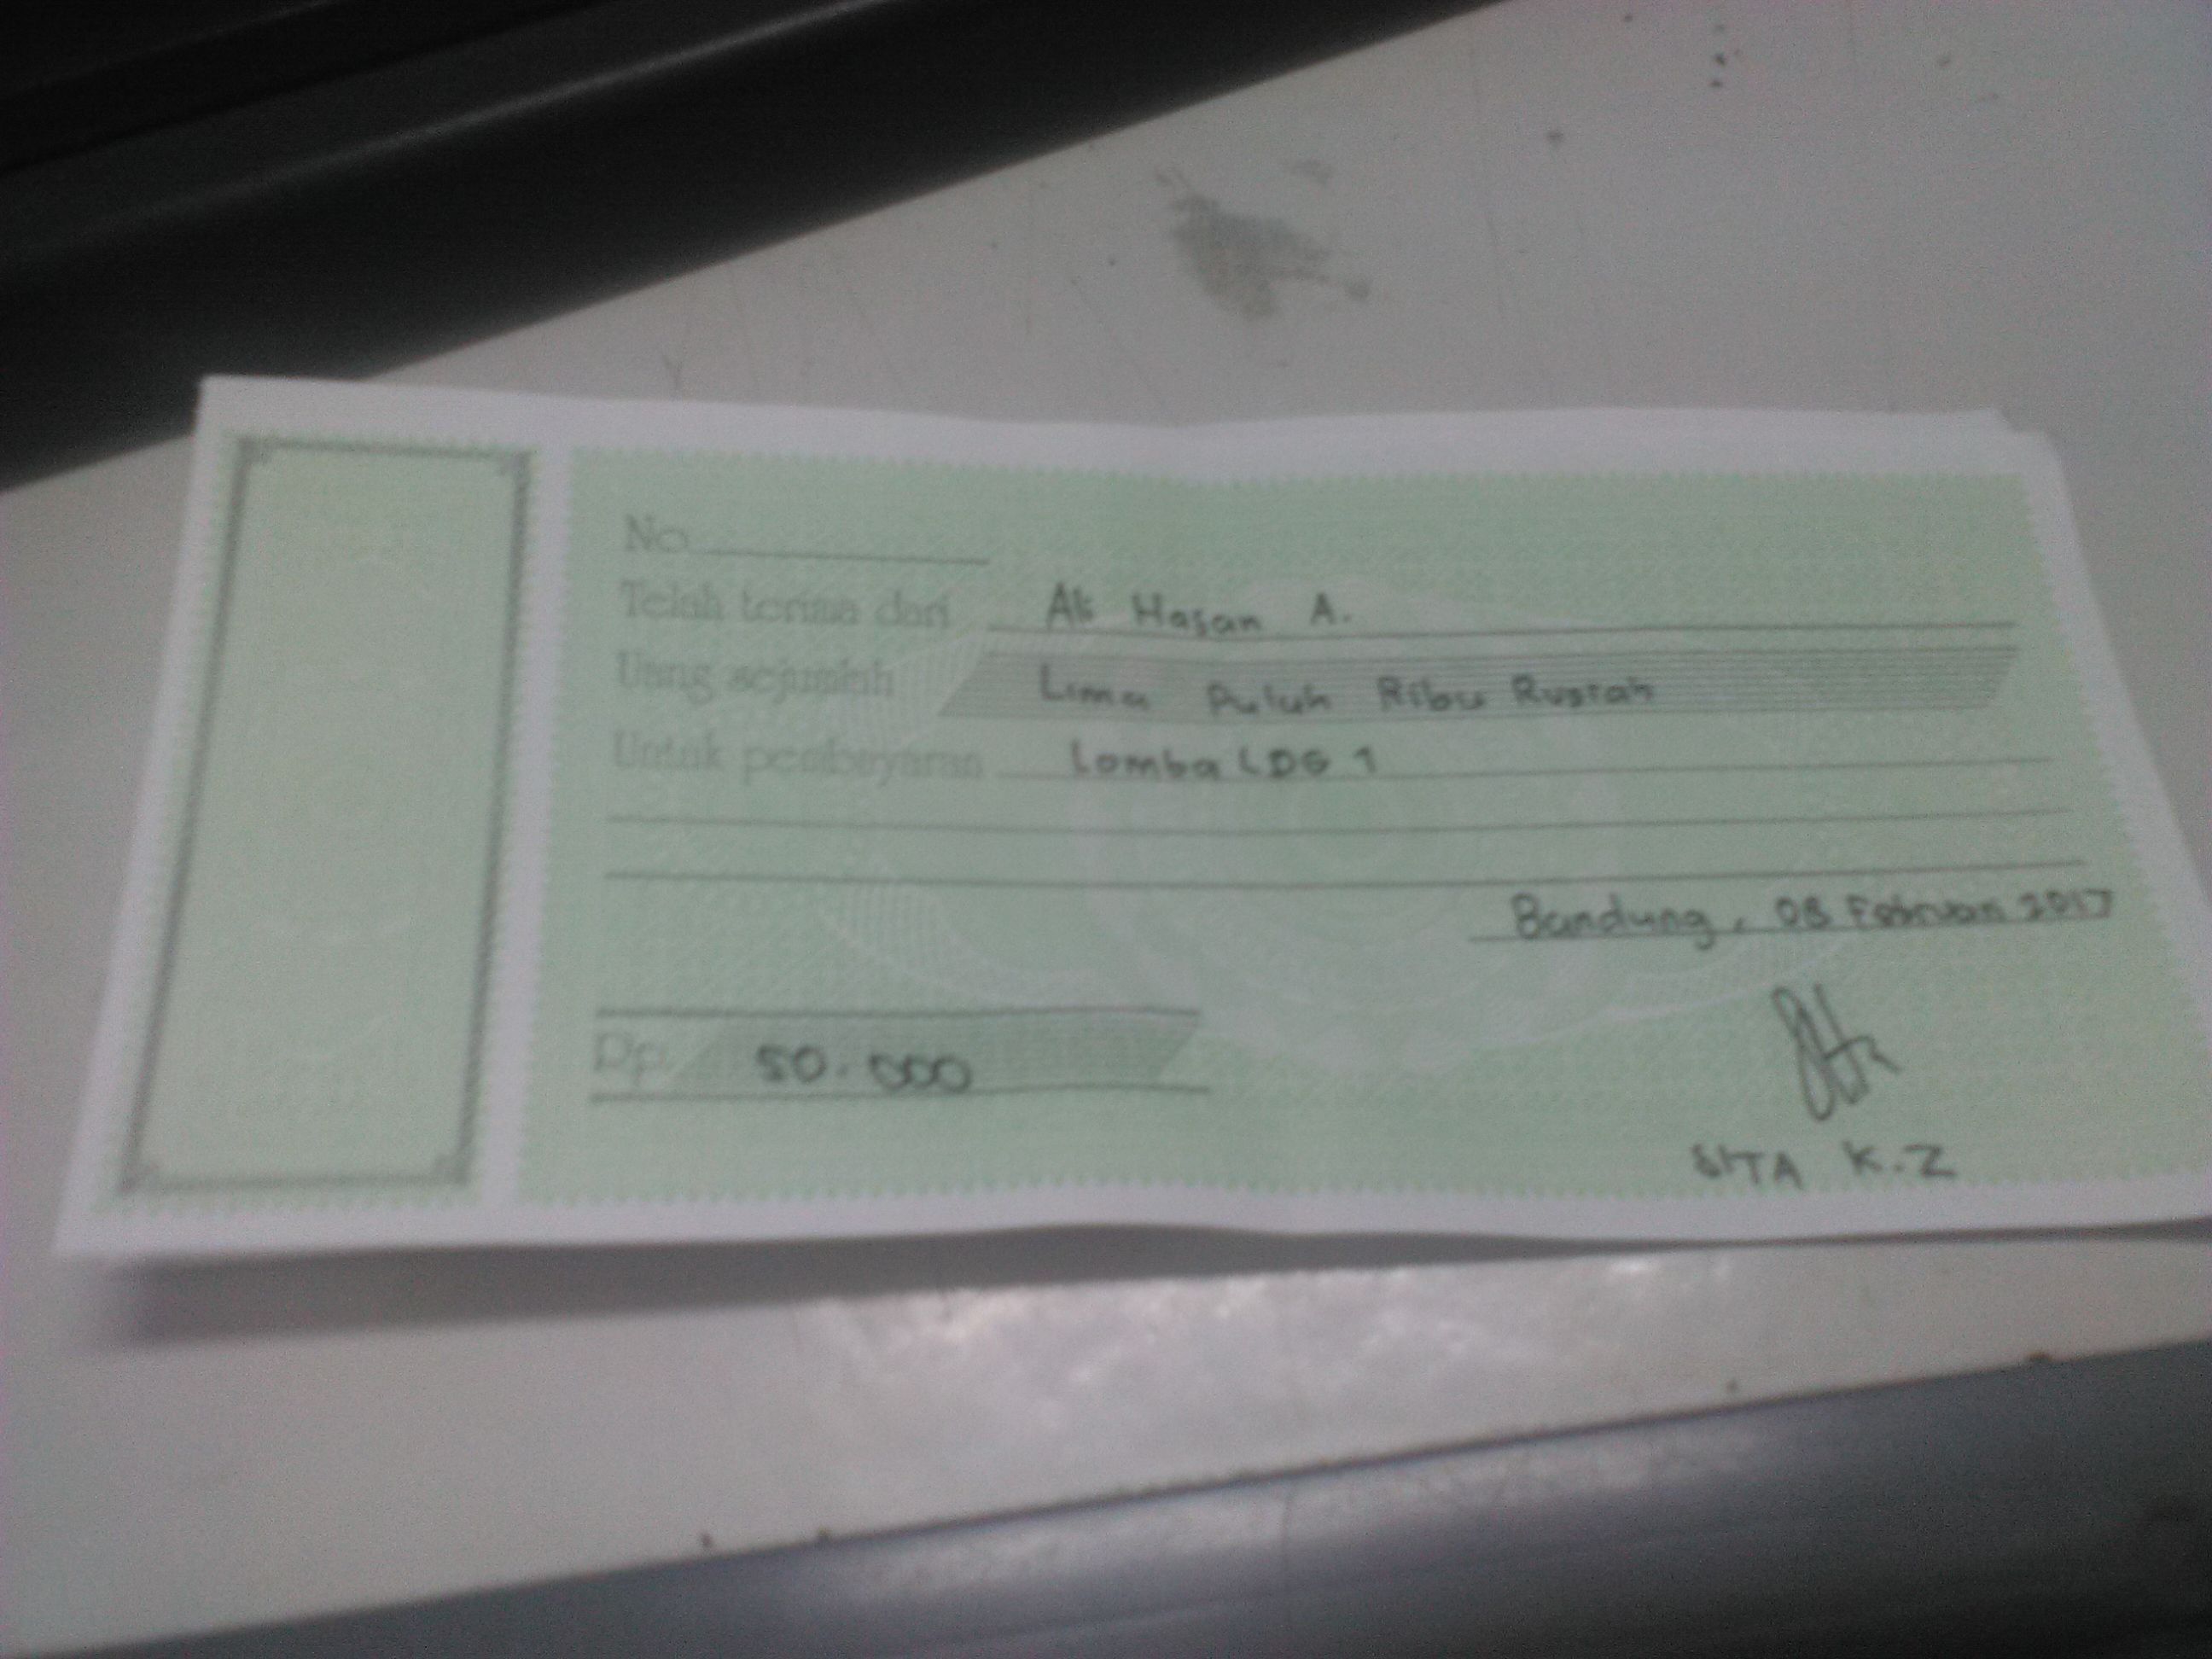 No.
Telah terima dari Ali Hasan A.
Uang sejumlah Lima Puluh Ribu Rupiah
Untuk pembayaran Lomba LDG 1
Bandung, 08 Februari 2017
Rp. 50.000
SITA K.Z